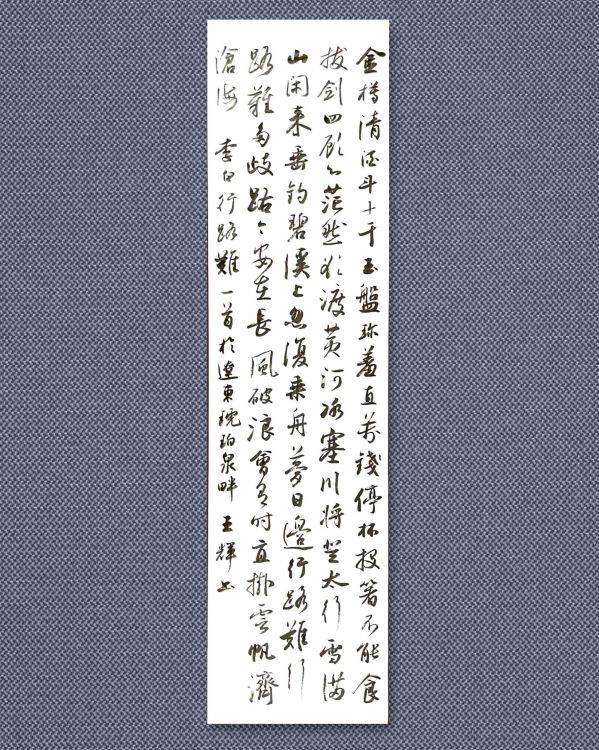 金樽清酒斗十千玉盤珍羞直萬錢停杯投箸不能食
拔剑四顾心茫然欲渡黄河冰塞川将登太行雪满
山闲来垂钓碧溪上忽復乘舟夢日邊行路難行
路難多歧路今安在長風破浪會有时直挂雲帆濟
滄海 李白行路難一首於遼東琥珀泉畔 王輝书